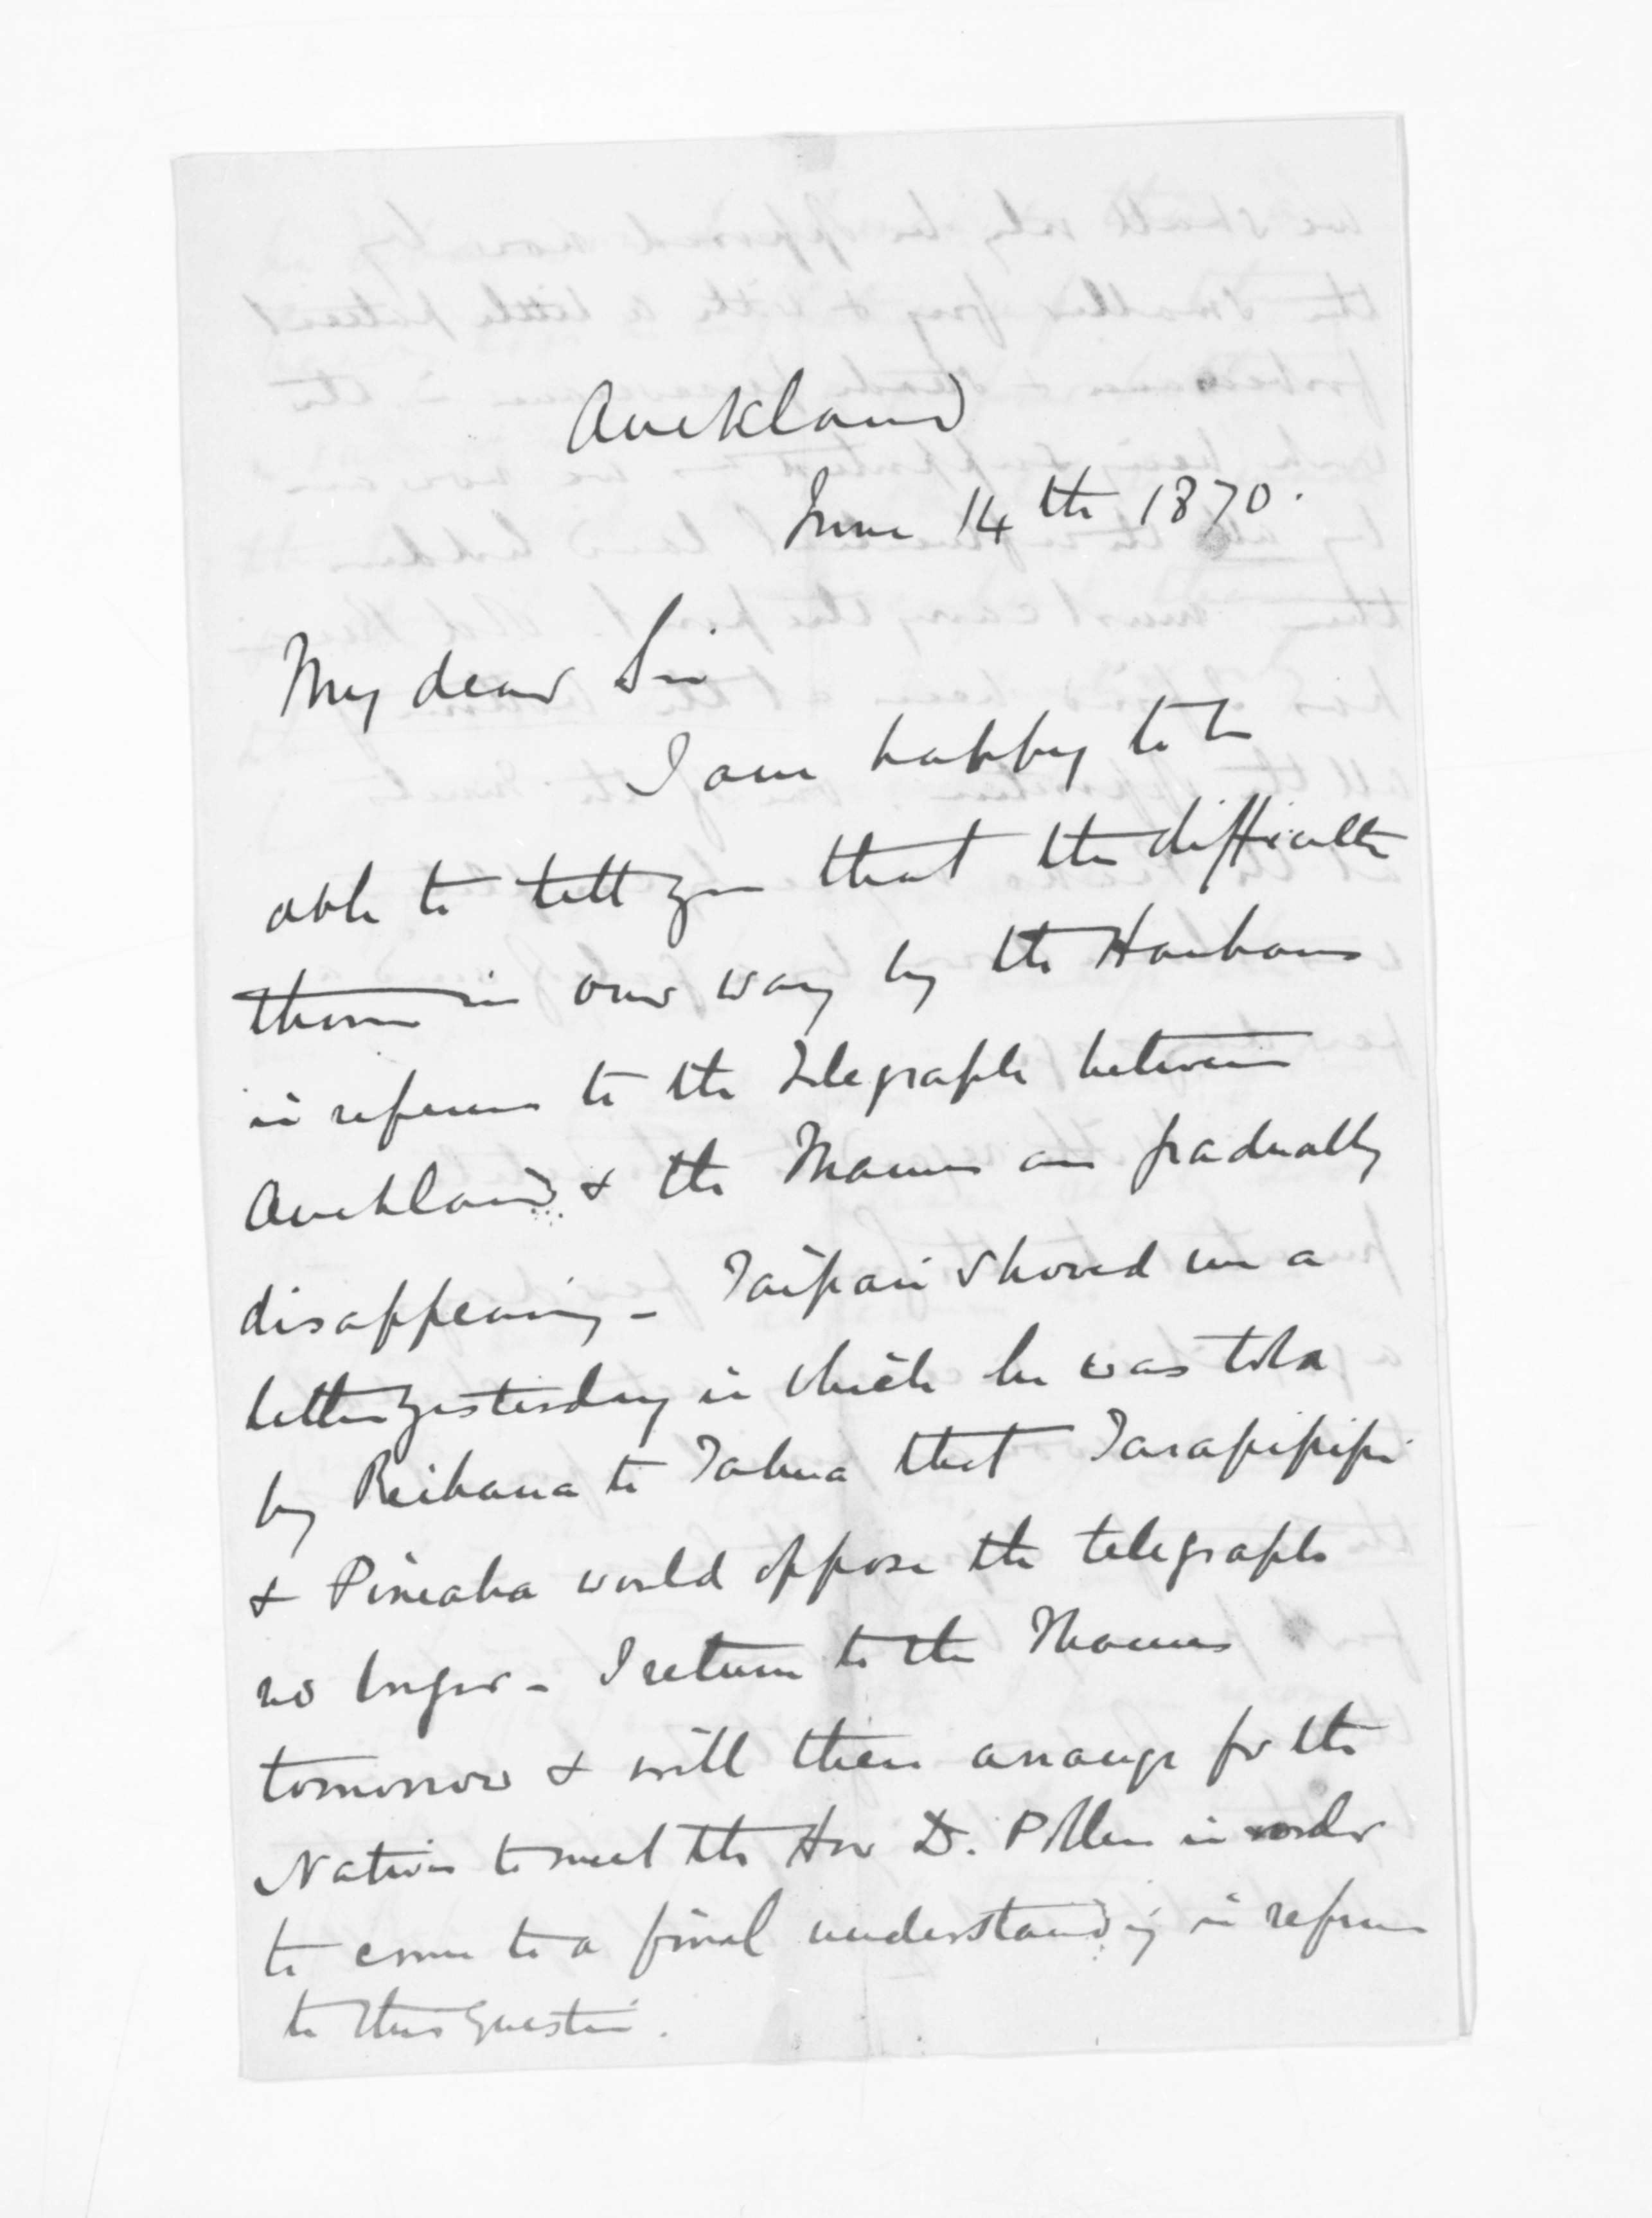 Auckland
June 14th 1870.
My dear Sir
I am happy to be
able to tell you that the difficulties
thrown in our way by the Hauhaus
in reference to the Telegraph between
Auckland & the Thames are gradually
disappearing - Taipari showed me a
letter yesterday in which he was told
by Reihana te Tahua that Tarapipipi
& Pineaha would oppose the telegraph
no longer - I return to the Thames
tomorrow & will then arrange for the
Natives to meet the Hon Dr. Pollen in order
to come to a final understanding in reference
to this question.